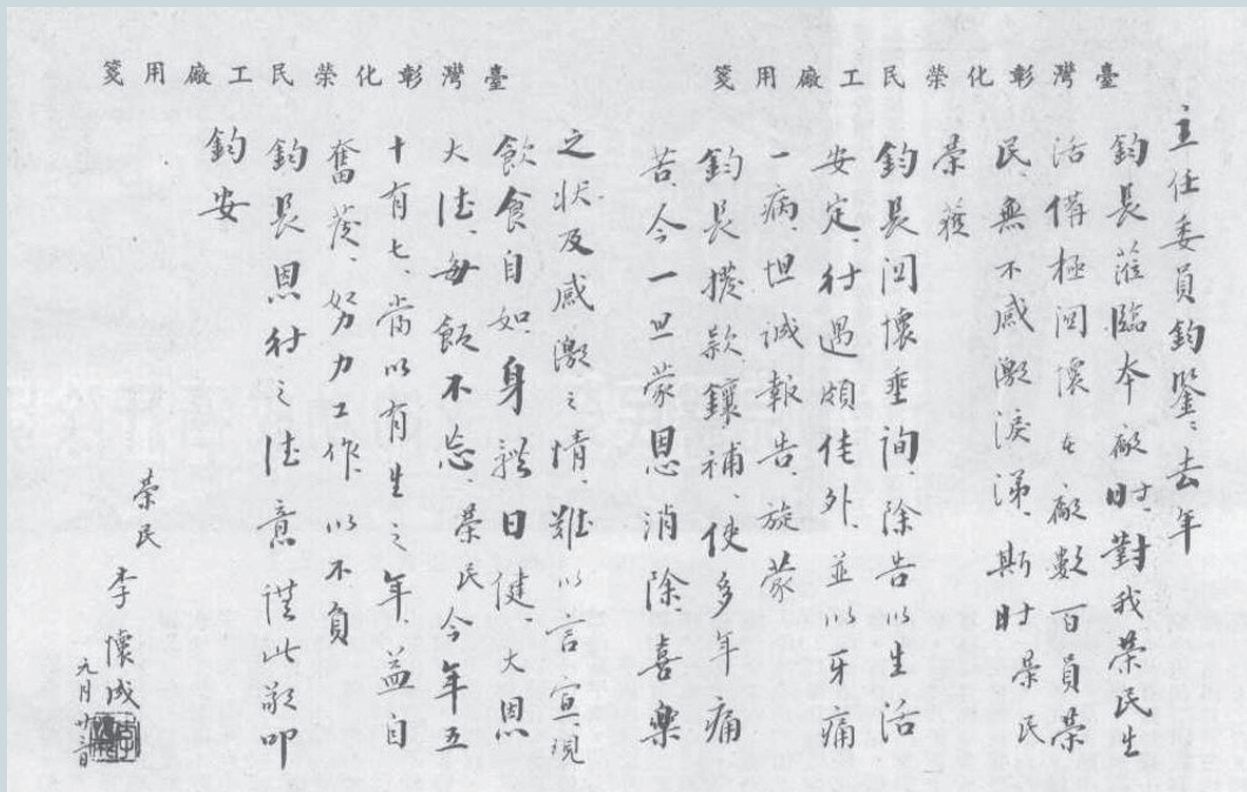 臺灣彰化榮民工廠用箋
主任委員鈞鑒:去年
鈞長蒞臨本廠時、對我榮民生
活備極關懷 廠數百員榮
民、無不感激淚涕、斯時榮民
榮獲
鈞長關懷垂詢、除告以生活
安定、待遇頗佳外、並以牙痛
一病、坦誠報告、旋蒙
鈞長撥款鑲補、使多年痛
苦、今一旦蒙恩消除、喜樂
臺灣彰化榮民工廠用箋
之狀及感激之情、難以言宣、現
飲食自如、身體日健、大恩
大德、每飯不忘、榮民今年五
十有七、當以有生之年、益自
奮發、努力工作、以不負
鈞長恩待之德意 謹此敬叩
鈞安
榮民 李懷成
元月廿三日